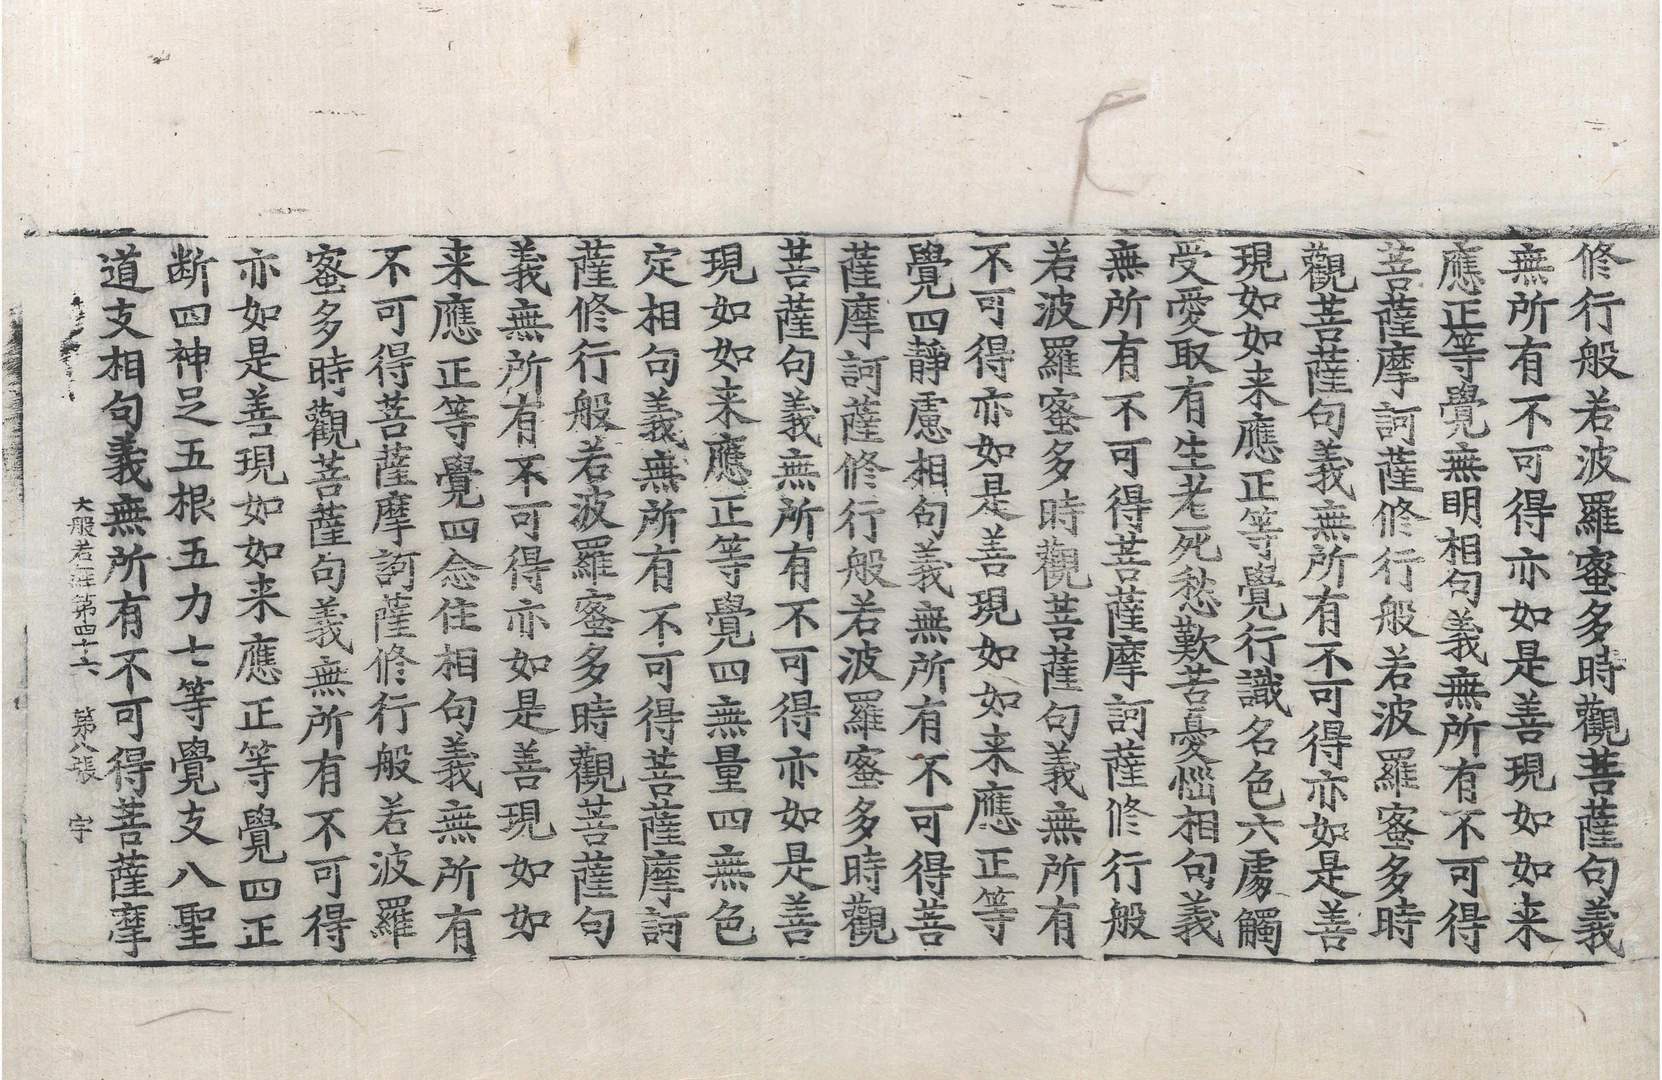 修行般若波羅蜜多時觀菩薩句義
無所有不可得亦如是善現如如来
應正等覺無明相句義無所有不可得
菩薩摩訶薩修行般若波羅蜜多時
觀菩薩句義無所有不可得亦如是善
現如如来應正等覺行識名色六處觸
受愛取有生老死愁歎苦憂惱相句義
無所有不可得菩薩摩訶薩修行般
若波羅蜜多時觀菩薩句義無所有
不可得亦如是善現如如来應正等
覺四靜慮相句義無所有不可得菩
薩摩訶薩修行般若波羅蜜多時觀
菩薩句義無所有不可得亦如是善
現如如来應正等覺四無量四無色
定相句義無所有不可得菩薩摩訶
薩修行般若波羅蜜多時觀菩薩句
義無所有不可得亦如是善現如如
来應正等覺四念住相句義無所有
不可得菩薩摩訶薩修行般若波羅
蜜多時觀菩薩句義無所有不可得
亦如是善現如如来應正等覺四正
断四神足五根五力七等覺支八聖
道支相句義無所有不可得菩薩摩
大般若經第四十六 第八張 宇